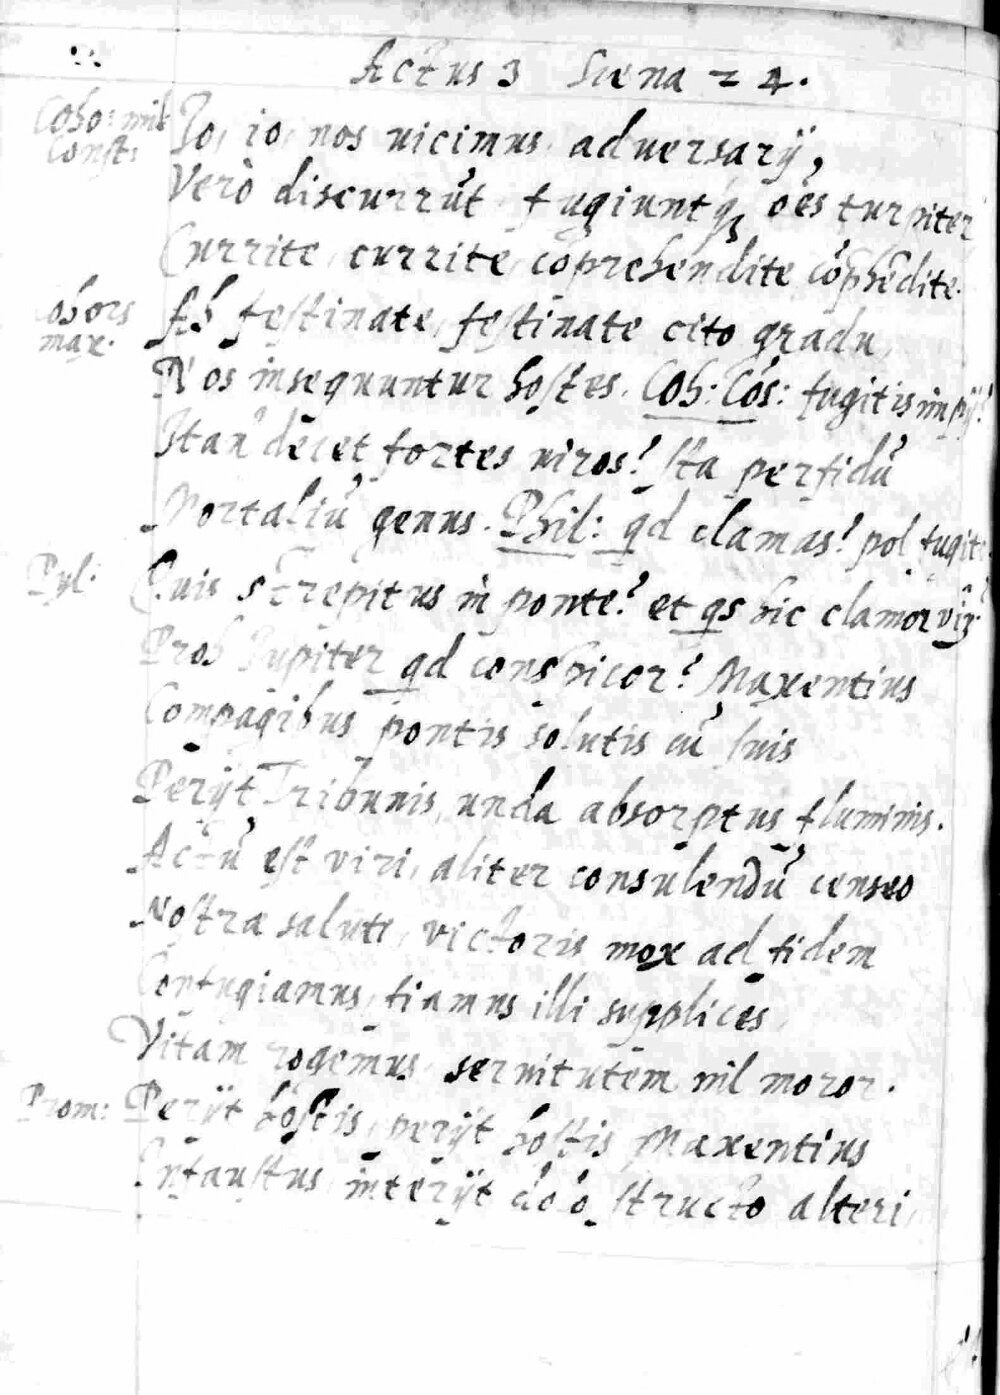 Actus 3 Scena = 4.
Coho: mil: Io, io, nos uicimus, adversarij,
Const: Verò discurrūt, fugiuntq; oēs turpiter
Currite, currite, cōprehendite cōphēdite.
Cohors Ah festinate, festinate cito gradu,
max. Nos insequuntur hostes. Coh: Cōs: fugitis impij?
Itan' decet fortes uiros? Ita perfidū
Mortaliū genus. Phil: qd clamas? pol fugite.
Pyl: Quis strepitus in ponte? et qs hic clamor
Proh Jupiter qd conspicor? Maxentius
Compagibus pontis solutis cū suis
Perijt Tribunis, unda absorptus fluminis.
Actū est viri, aliter consulendū censeo
Nostræ saluti, victoris mox ad fidem
Confugiamus, fiamus illi supplices,
Vitam rogemus, seruitutem nil moror.
Prom: Perijt hostis, perijt hostis Maxentius
Infaustus, interijt dolo structo alteri,